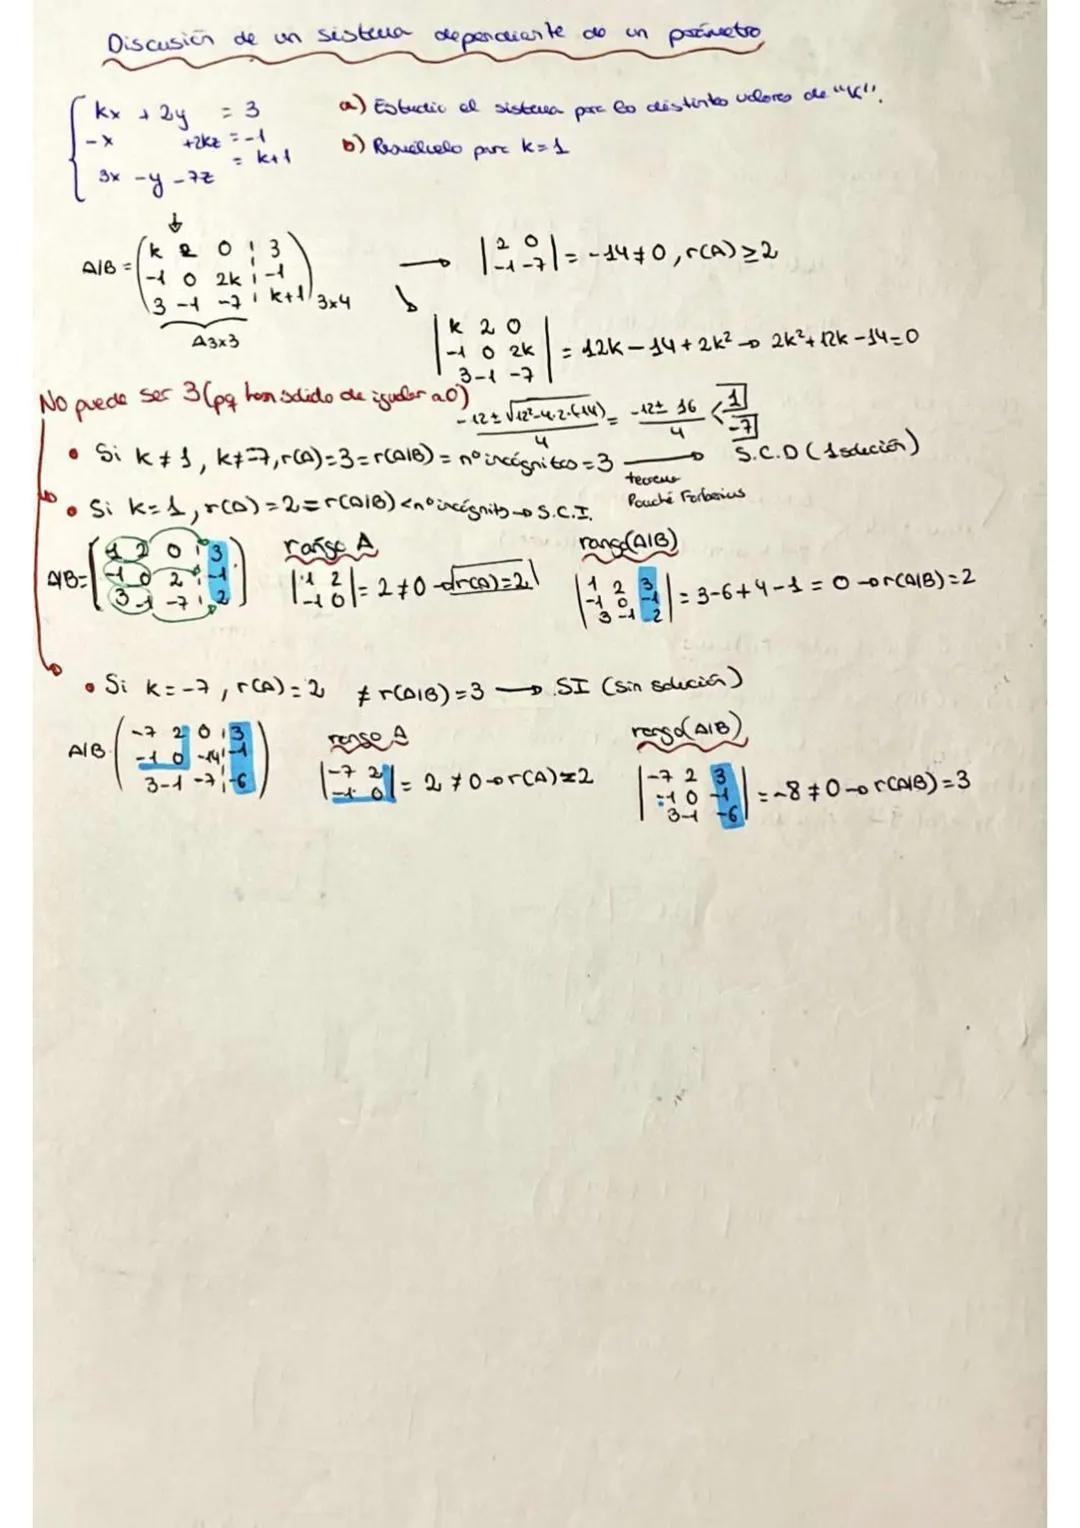 Discusión de un sistema dependiente de un parámetro
kx + 2y = 3
-x +2kz = -1
3x -y -7z = k+1
a) Estudie el sistema para los distintos valores de "k".
b) Resuélvelo para k=1
A/B = (k 2 0 | 3
-1 0 2k | -1
3 -1 -7 | k+1) 3x4
A3x3
|2 0
-1 -7| = -14 ≠ 0, r(A) ≥ 2
|k 2 0
-1 0 2k
3 -1 -7| = 12k - 14 + 2k² → 2k² + 12k - 14 = 0
No puede ser 3 (pq han salido de igualar a 0)
-12 ± √12²-4·2·(-14) / 4 = -12 ± 16 / 4 < 1
-7
• Si k ≠ 1, k ≠ -7, r(A) = 3 = r(A/B) = nº incógnitas = 3 → S.C.D (1 solución)
teorema
Rouché Forbenius
• Si k = 1, r(A) = 2 = r(A/B) < nº incógnits → S.C.I.
A/B = (1 2 0 | 3
-1 0 2 | -1
3 -1 -7 | 2)
rango A
|1 2
-1 0| = 2 ≠ 0 → r(A) = 2
rango(A/B)
|1 2 3
-1 0 -1
3 -1 2| = 3 - 6 + 4 - 1 = 0 → r(A/B) = 2
• Si k = -7, r(A) = 2 ≠ r(A/B) = 3 → SI (Sin solución)
A/B (-7 2 0 | 3
-1 0 -14 | -1
3 -1 -7 | -6)
rango A
|-7 2
-1 0| = 2 ≠ 0 → r(A) = 2
rango(A/B)
|-7 2 3
-1 0 -1
3 -1 -6| = -8 ≠ 0 → r(A/B) = 3